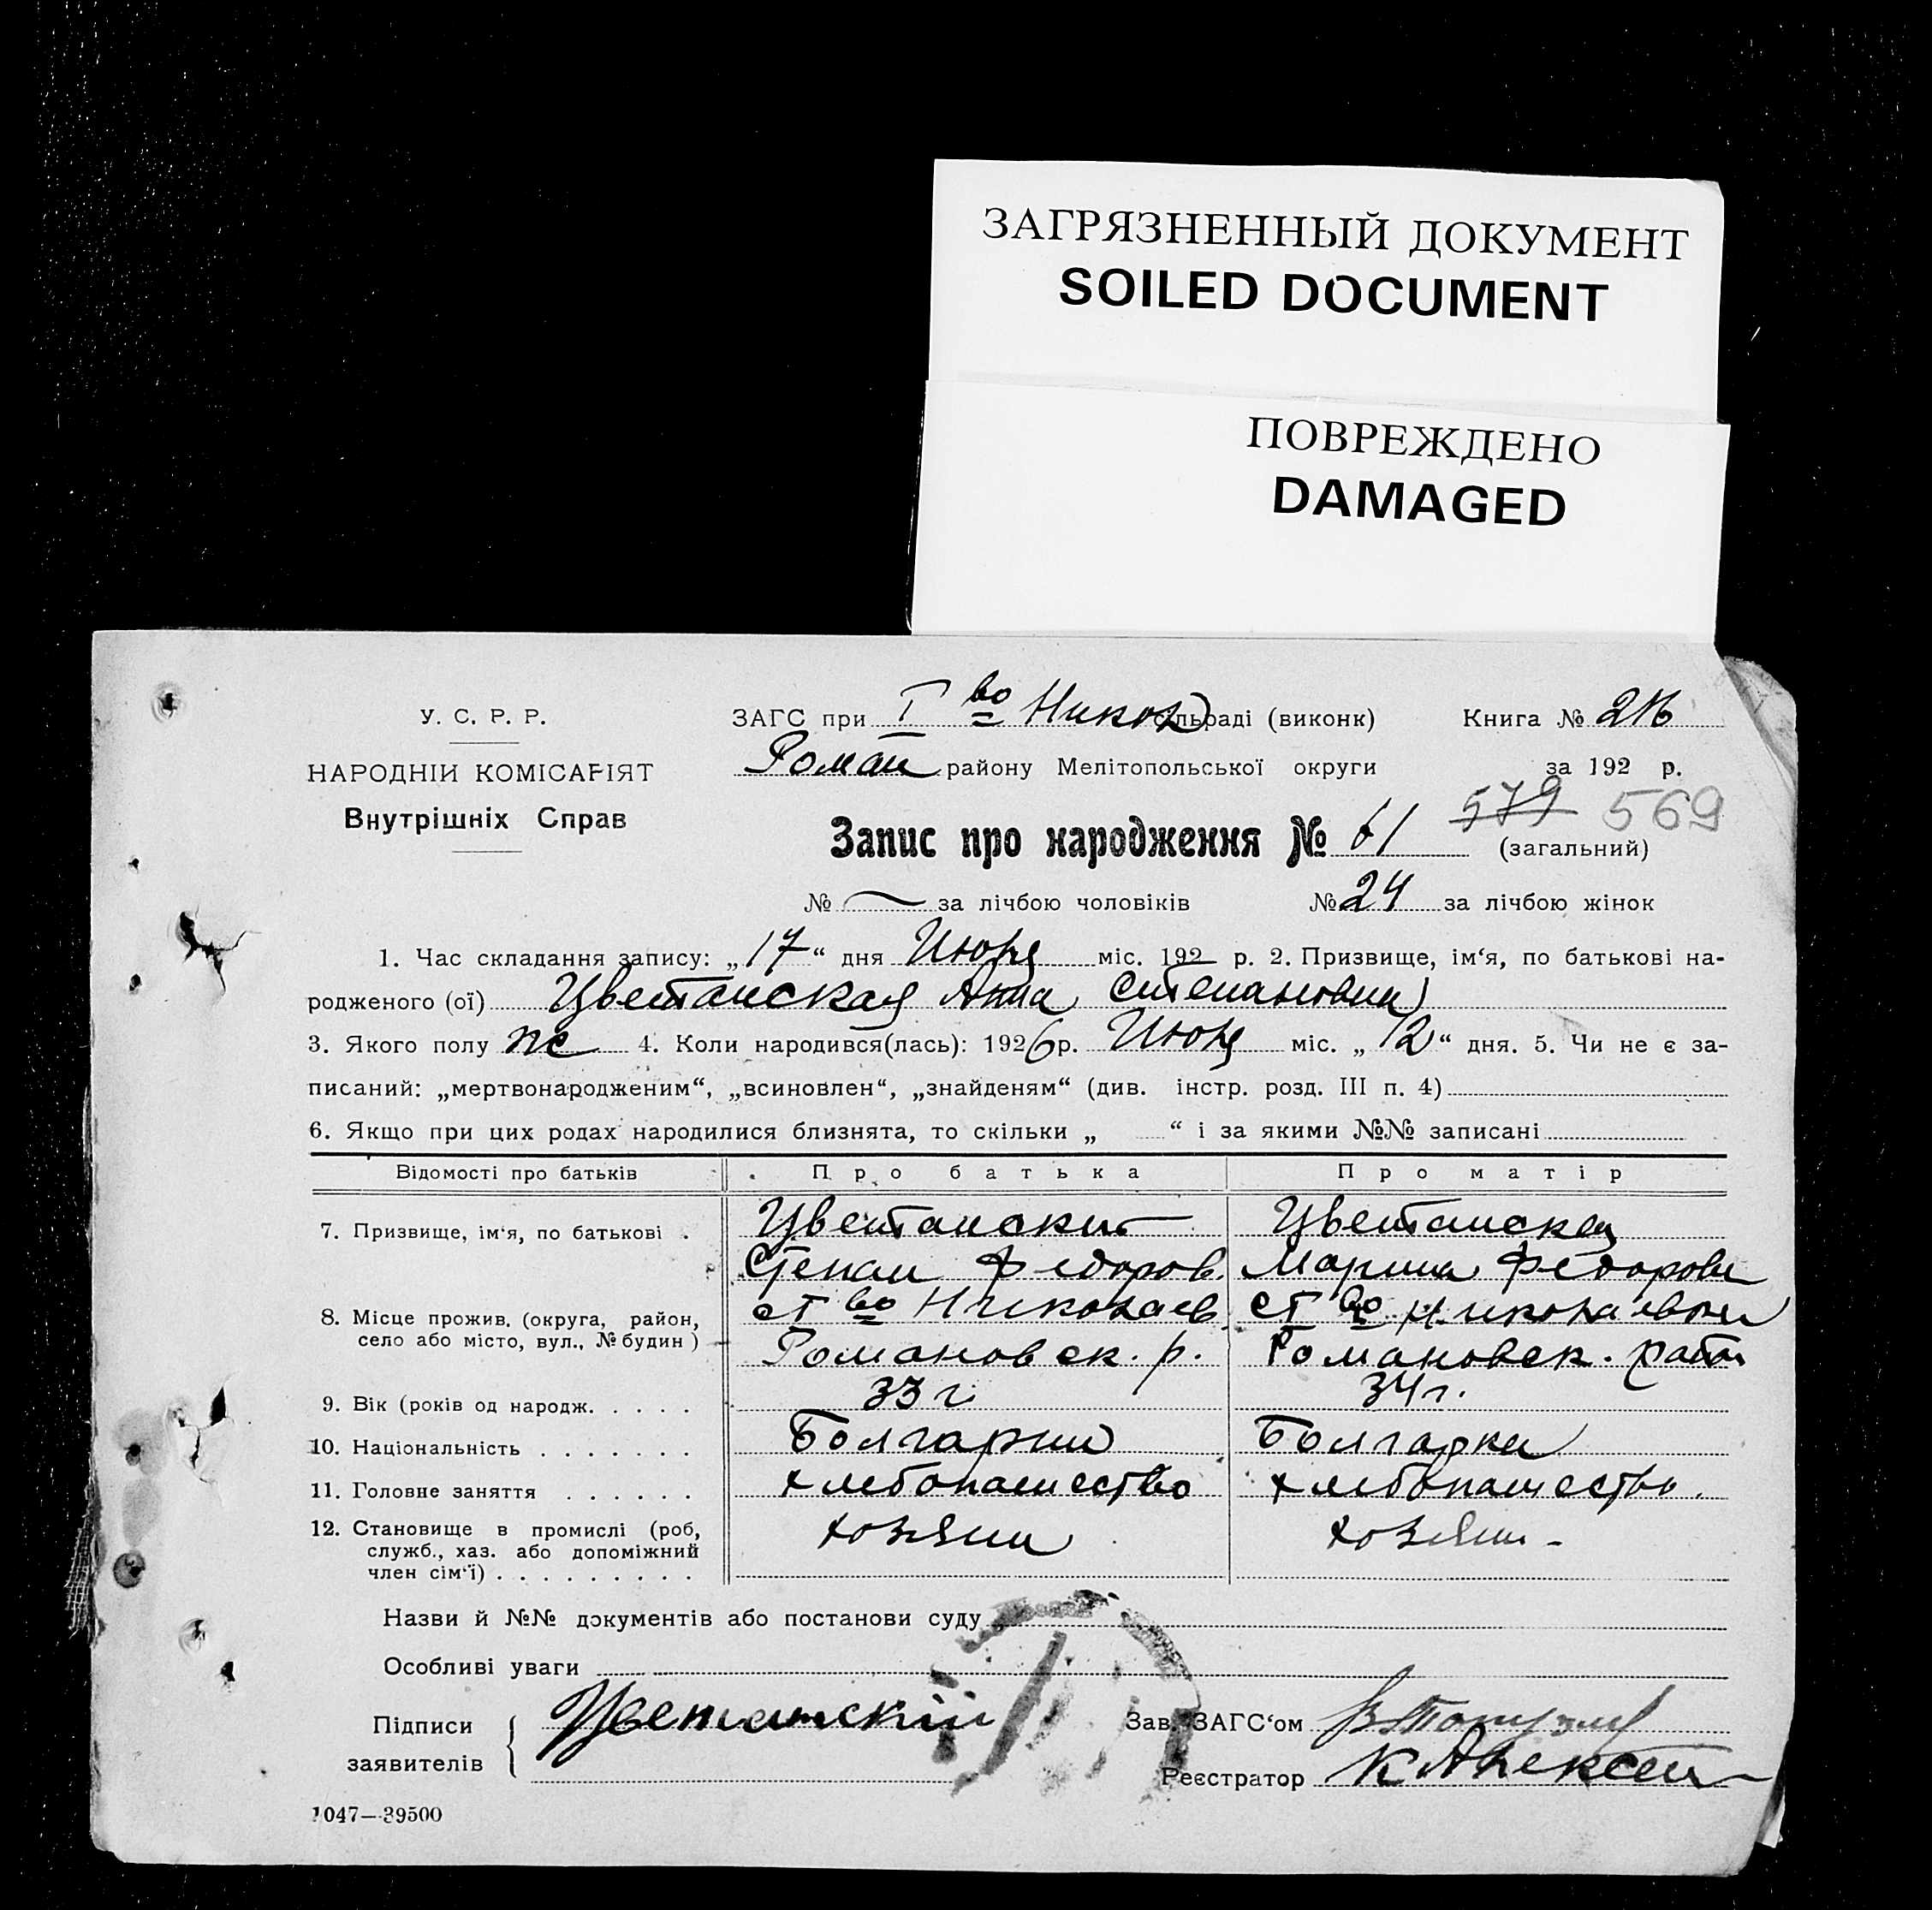 ЗАГРЯЗНЕННЫЙ ДОКУМЕНТ
SOILED DOCUMENT
ПОВРЕЖДЕНО
DAMAGED
У. С. Р. Р.
НАРОДНІИ КОМІСАРІЯТ
Внутрішніх Справ
ЗАГС при I во Никол сільраді (виконк) Книга №
Роман району Мелітопольської округи за 192 р.
579 569
Запис про народження № 61 (загальний)
№ — за лічбою чоловіків № 24 за лічбою жінок
1. Час складання запису: „17“ дня Июля міс. 192 р. 2. Призвище, ім‘я, по батькові на-
родженого (ої) Цветанская Анна Степановна
3. Якого полу ж 4. Коли народився(лась): 1926 р. Июля міс. „12“ дня. 5. Чи не є за-
писаний: „мертвонародженим“, „всиновлен“, „знайденям“ (див. інстр. розд. III п. 4)
6. Якщо при цих родах народилися близнята, то скільки „ “ і за якими №№ записані
Відомості про батьків Про батька Про матір
7. Призвище, ім‘я, по батькові . Цветанский Цветанская
Степан Федоров. Марина Федоровн
8. Місце прожив. (округа, район, ст во Николаев ст во Николаевки
село або місто, вул., № будин) Романовск. р. Романовск. район
9. Вік (років од народж. . . . . 33 г. 34 г.
10. Національність . . . . . . . Болгарин Болгарка
11. Головне заняття . . . . . . Хлебопашество Хлебопашество.
12. Становище в промислі (роб, хозяин хозяин -
служб., хаз. або допоміжний
член сім‘ї) . . . . . . . . .
Назви й №№ документів або постанови суду
Особливі уваги
Підписи заявителів Цветанский Зав. ЗАГС‘ом
Реєстратор К Алексеи
1047—39500